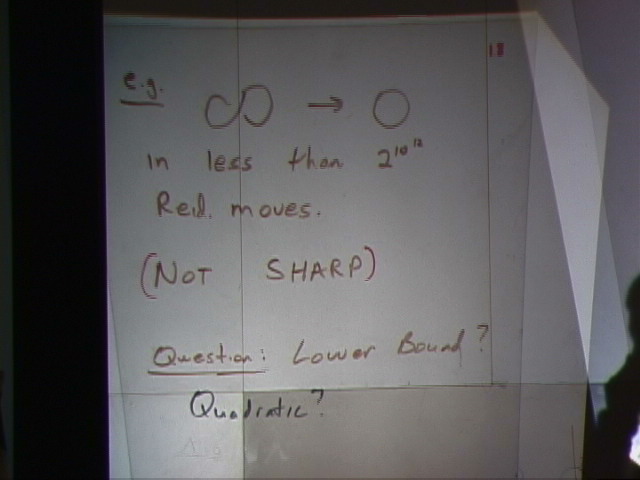 e.g.
→
in less than 2^10^12
Reid. moves.
(NOT SHARP)
Question: Lower Bound?
Quadratic?